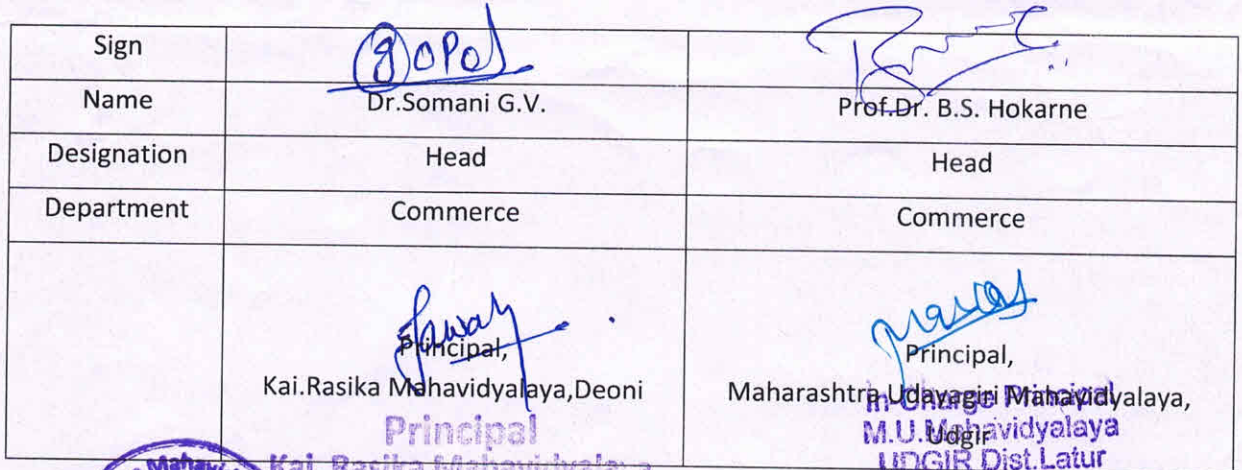 Sign gopal
Name Dr.Somani G.V. Prof.Dr. B.S. Hokarne
Designation Head Head
Department Commerce Commerce
Principal, Principal,
Kai.Rasika Mahavidyalaya,Deoni Maharashtra Udayagiri Mahavidyalaya,
Udgir
Principal
Kai. Rasika Mahavidyalaya
In-Charge Principal
M.U.Mahavidyalaya
UDGIR Dist.Latur
Mahavi